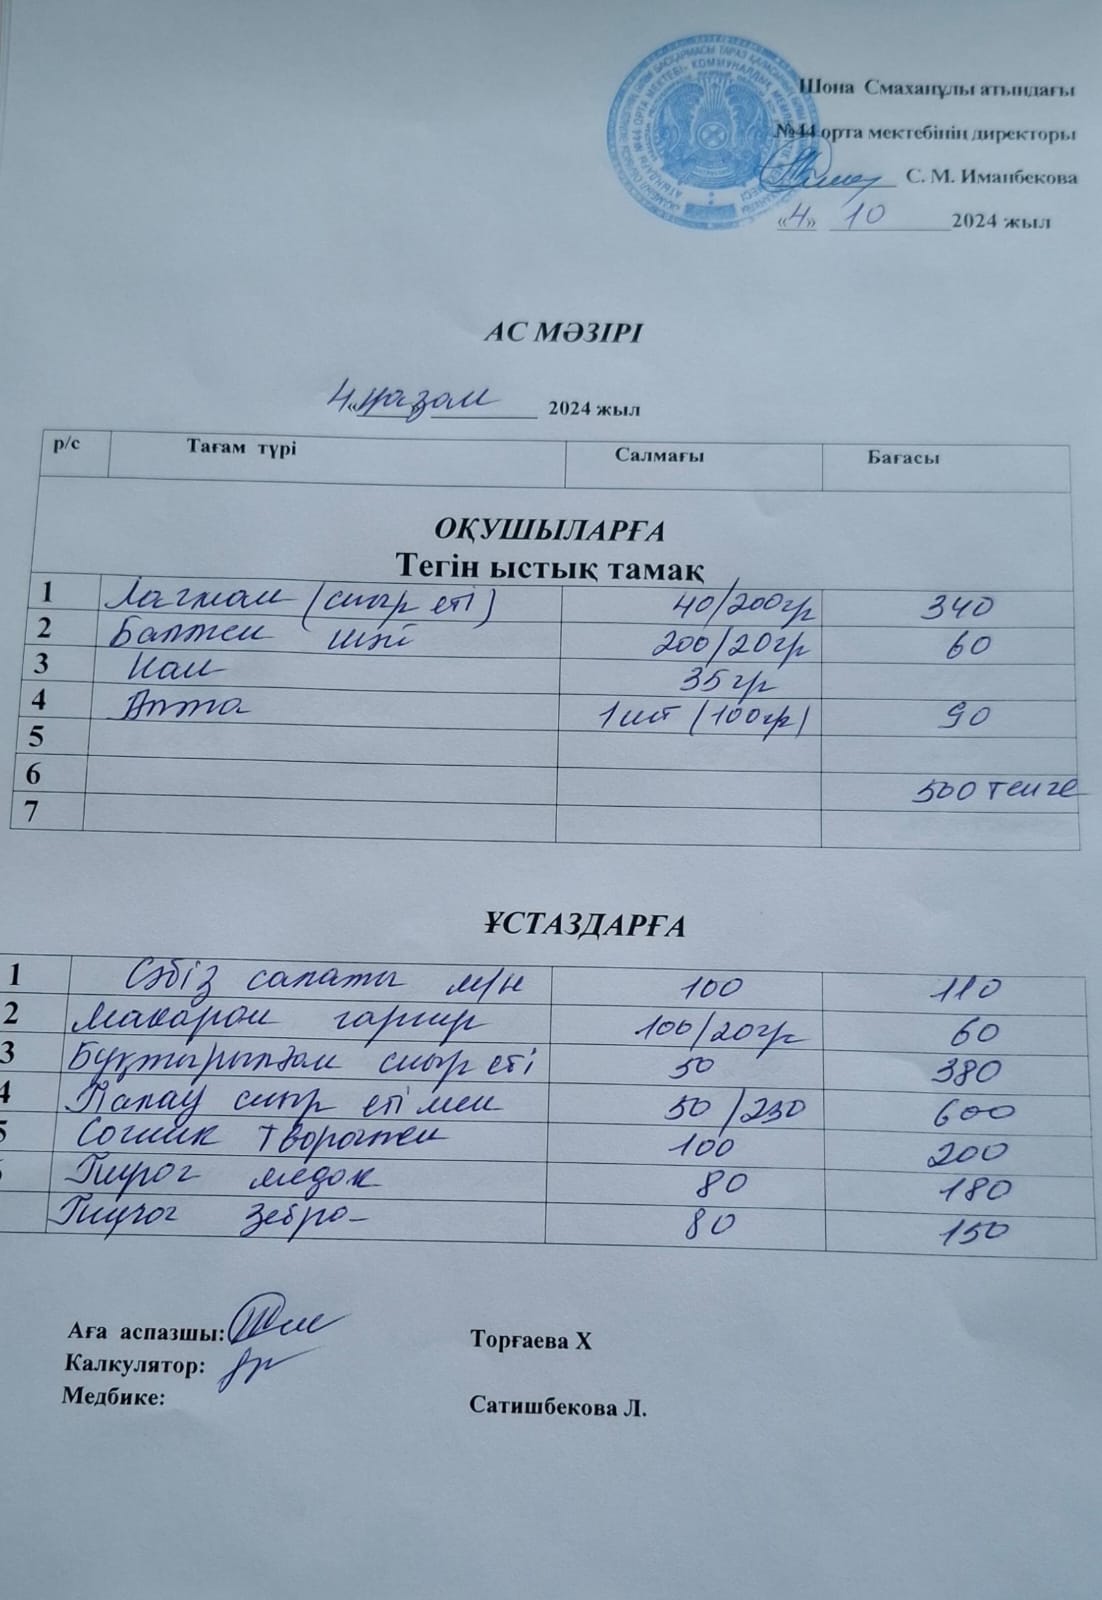 Шона Смаханұлы атындағы
№44 орта мектебінің директоры
С. М. Иманбекова
«4» 10 2024 жыл
АС МӘЗІРІ
«4» қазан 2024 жыл
р/с Тағам түрі Салмағы Бағасы
ОҚУШЫЛАРҒА
Тегін ыстық тамақ
1 Лагман (сиыр еті) 40/200гр 340
2 Балмен шәй 200/20гр 60
3 Нан 35гр
4 Алма 1шт (100гр) 90
5
6 500 тенге
7
ҰСТАЗДАРҒА
1 Сәбіз салаты м/н 100 110
2 Макарон гарнир 100/20гр 60
3 Бұқтырылған сиыр еті 50 380
4 Палау сиыр етімен 50/230 600
5 Сочник творогмен 100 200
Пирог медок 80 180
Пирог зебра 80 150
Аға аспазшы: Торғаева Х
Калкулятор:
Медбике: Сатишбекова Л.